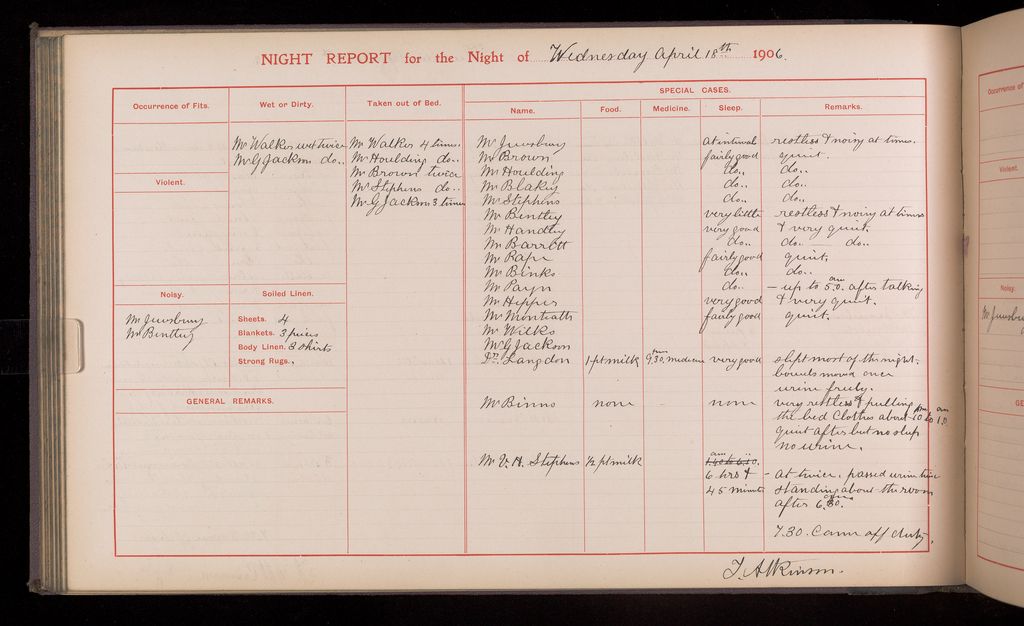 NIGHT REPORT for the Night of Wednesday April 18th 1906.
SPECIAL CASES.
Occurrence of Fits.
Wet or Dirty.
Taken out of Bed.
Name.
Food.
Medicine.
Sleep.
Remarks.
Mr Walker wet twice
Mr G Jackson do..
Violent.
Noisy.
Mr Jewsbury
Mr Bentley
Soiled Linen.
Sheets. 4
Blankets. 3 pieces
Body Linen. 3 shirts
Strong Rugs.
GENERAL REMARKS.
Mr Walker 4 times.
Mr Houlding do..
Mr Brown twice
Mr Stephens do..
Mr G Jackson 3 times
Mr Jewsbury at interval restless & noisy at times.
Mr Brown fairly good quiet.
Mr Houlding do.. do..
Mr Blakey do.. do..
Mr Stephens do.. do..
Mr Bentley very little restless & noisy at times
Mr Handley very good & very quiet.
Mr Barrott do.. do.. do..
Mr Raper fairly good quiet.
Mr Binks do.. do..
Mr Payn do.. - up to 5.0. am after talking
Mr Hepper very good & very quiet.
Mr Monteath fairly good quiet.
Mr Wilks
Mr G Jackson
Dr Langdon 1 pt milk 9.30. medicine very good slept most of the night.
bowels moved once
urine freely.
Mr Binns none none very restless & pulling
the bed clothes about 10 to 1.0.
quiet after but no sleep
no urine.
Mr V. H. Stephens ½ pt milk
6 hrs & - at twice, passed urine
45 minutes standing about the room
after 6.30.
7.30. Came off duty.
J. Atkinson.
Occurrence o
Violent.
Noisy.
Mr Jewsbu
GE